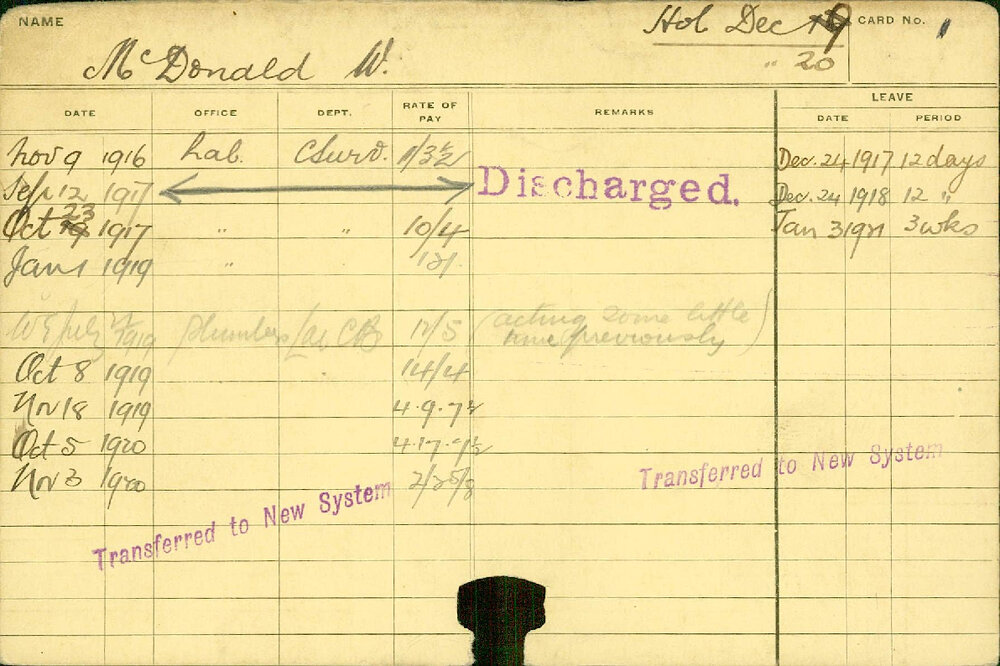 NAME
Hol Dec 19
" 20
CARD No. 1
McDonald W.
DATE OFFICE DEPT. RATE OF PAY REMARKS LEAVE
DATE PERIOD
Nov 9 1916 Lab. C Surv. 1/3½ Dec. 24 1917 12 days
Sep 12 1917 Discharged. Dec. 24 1918 12 "
Oct 23 1917 " " 10/4 Jan 3 1921 3 wks
Jan 1 1919 " 12/
W E July 1919 Plumbers 12/5 (acting some little
time previously)
Oct 8 1919 14/4
Nov 18 1919 4.9.7½
Oct 5 1920 4.17.
Nov 3 1920
Transferred to New System
Transferred to New System